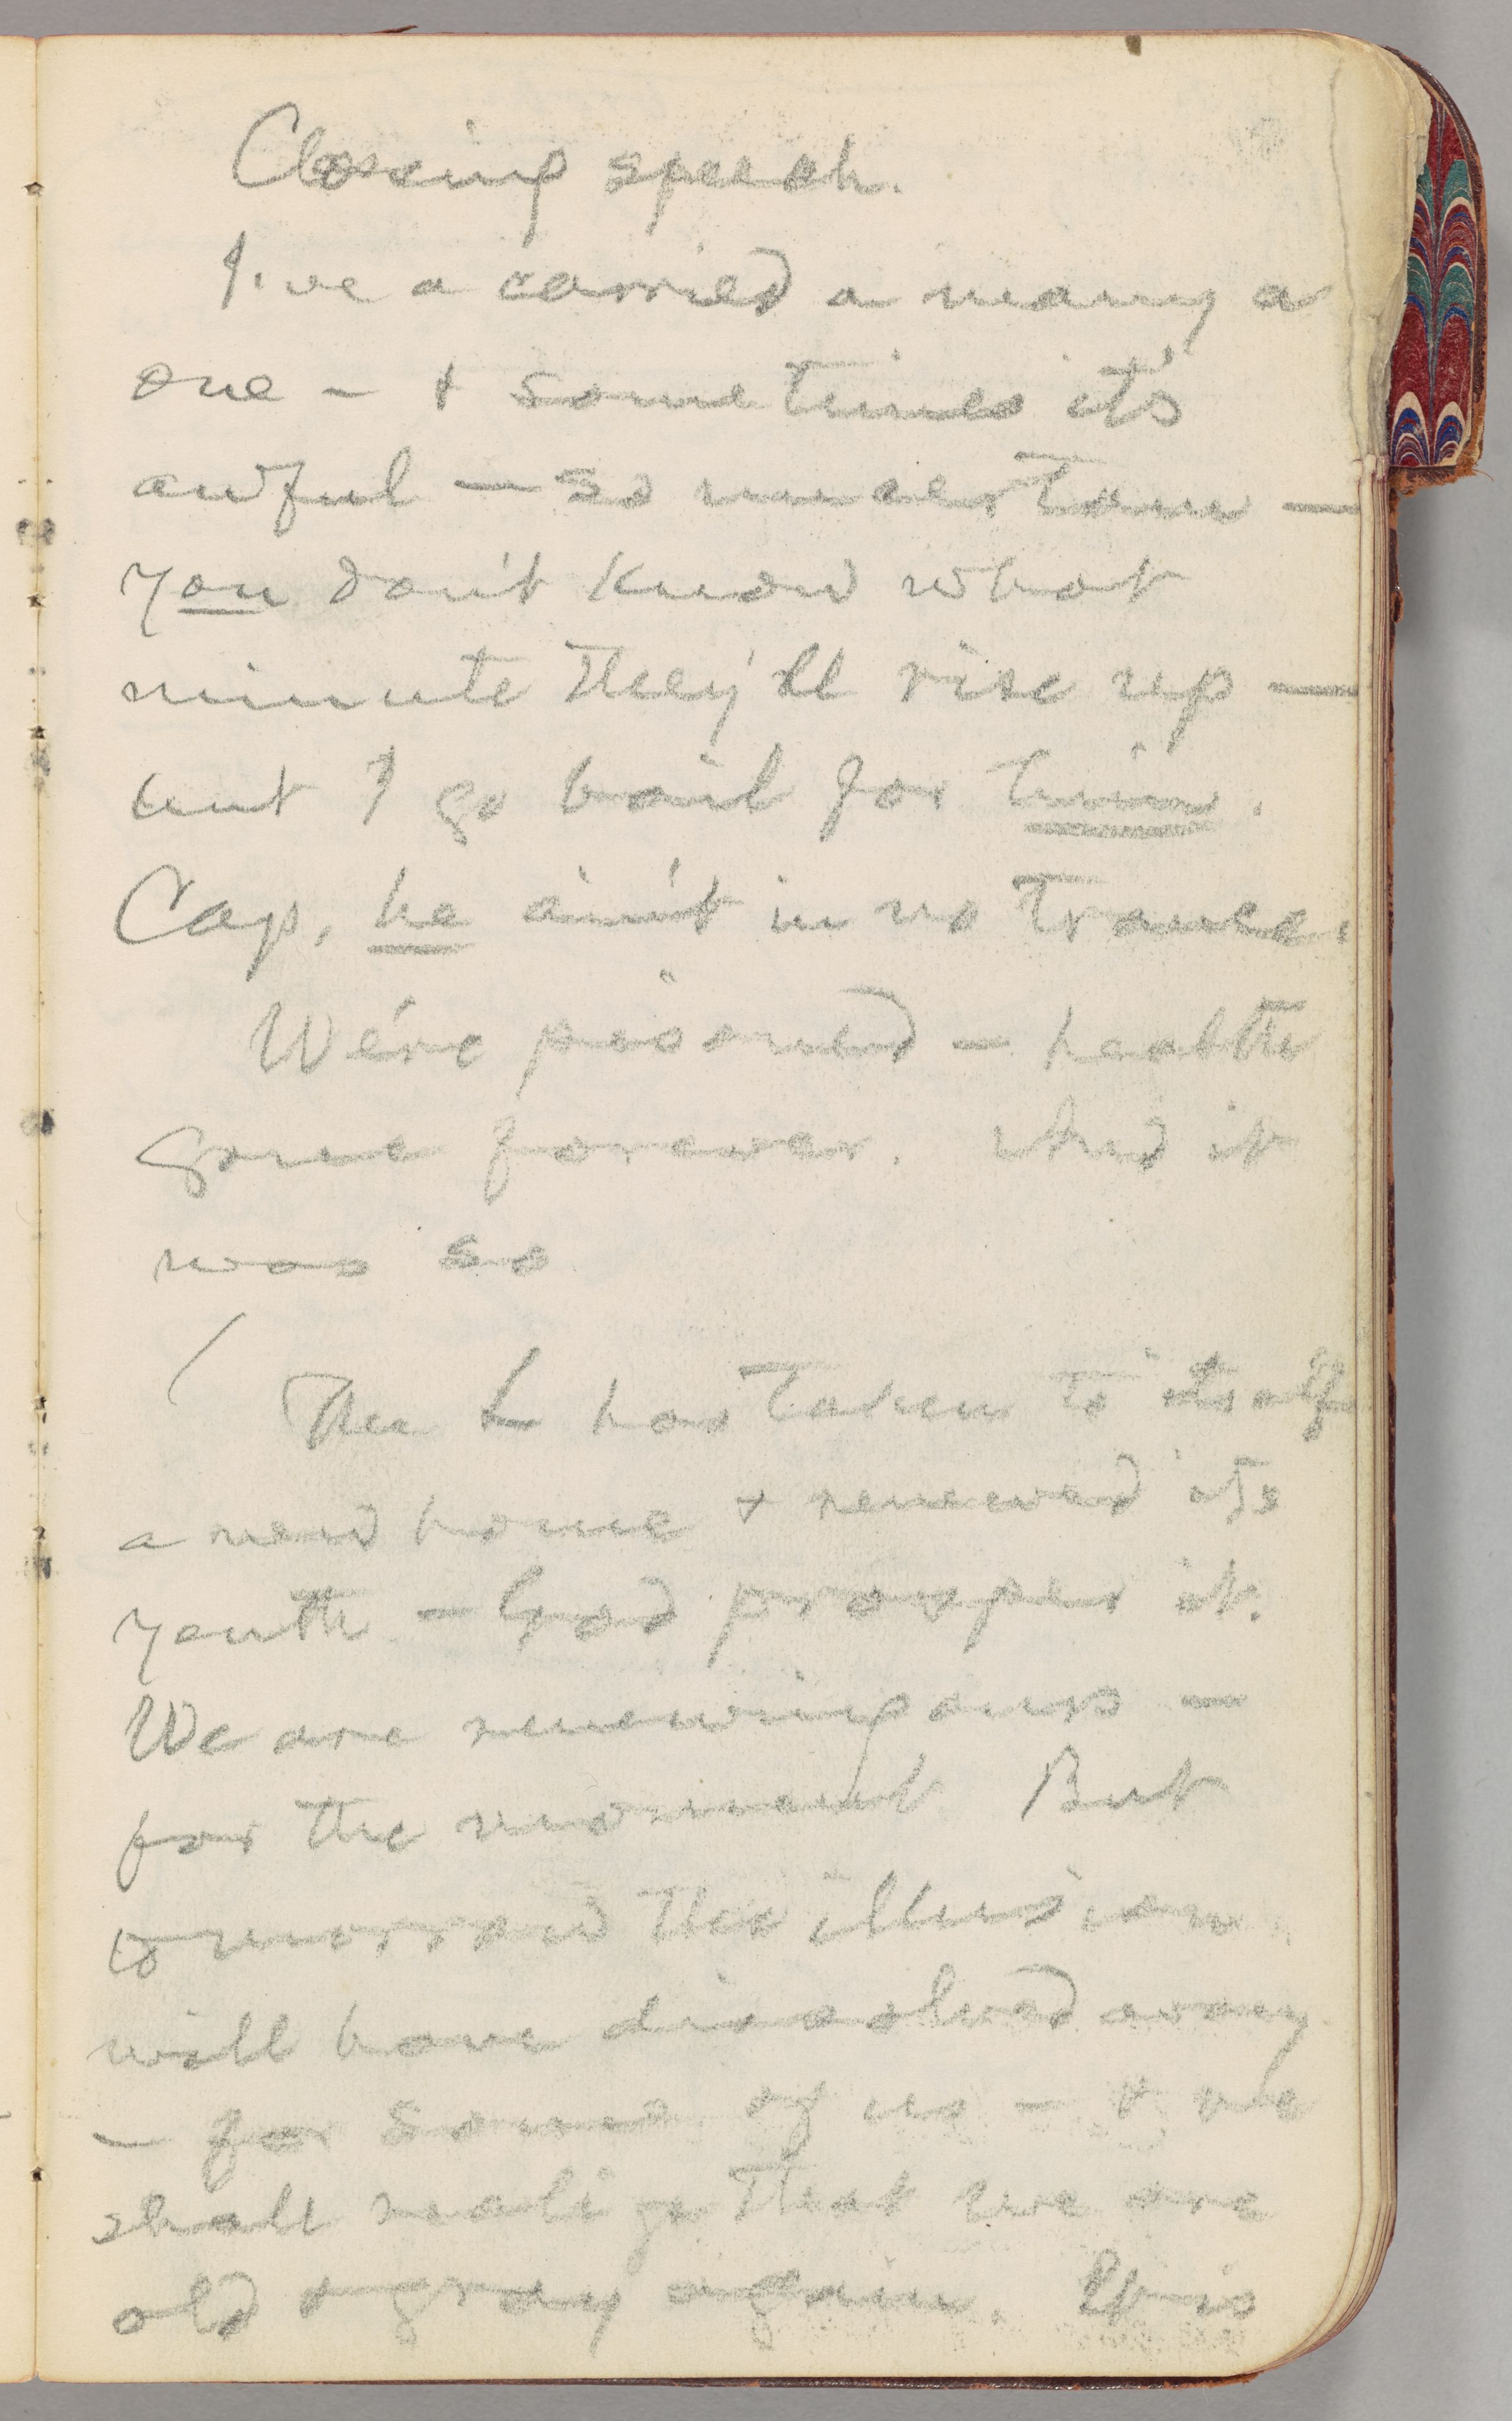 Closing speech.
I've a carried a many a
one — & sometimes it's
awful — so uncertain —
you don't know what
minute they'll rise up —
but I go bail for him.
Cap, he ain't in no trance.
We're poisoned — health
gone forever. And it
was so
The L has taken to itself
a new home & renewed its
youth — God prosper it.
We are renewing ours —
for the moment. But
tomorrow the illusion
will have dissolved away
— for some of us — & we
shall realize that we are
old & gray again. It is